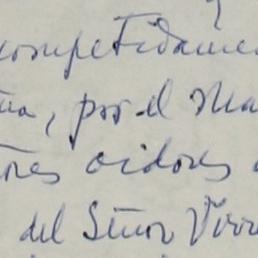 competidame
na, por el Ma
ores oidores
del Señor Virr